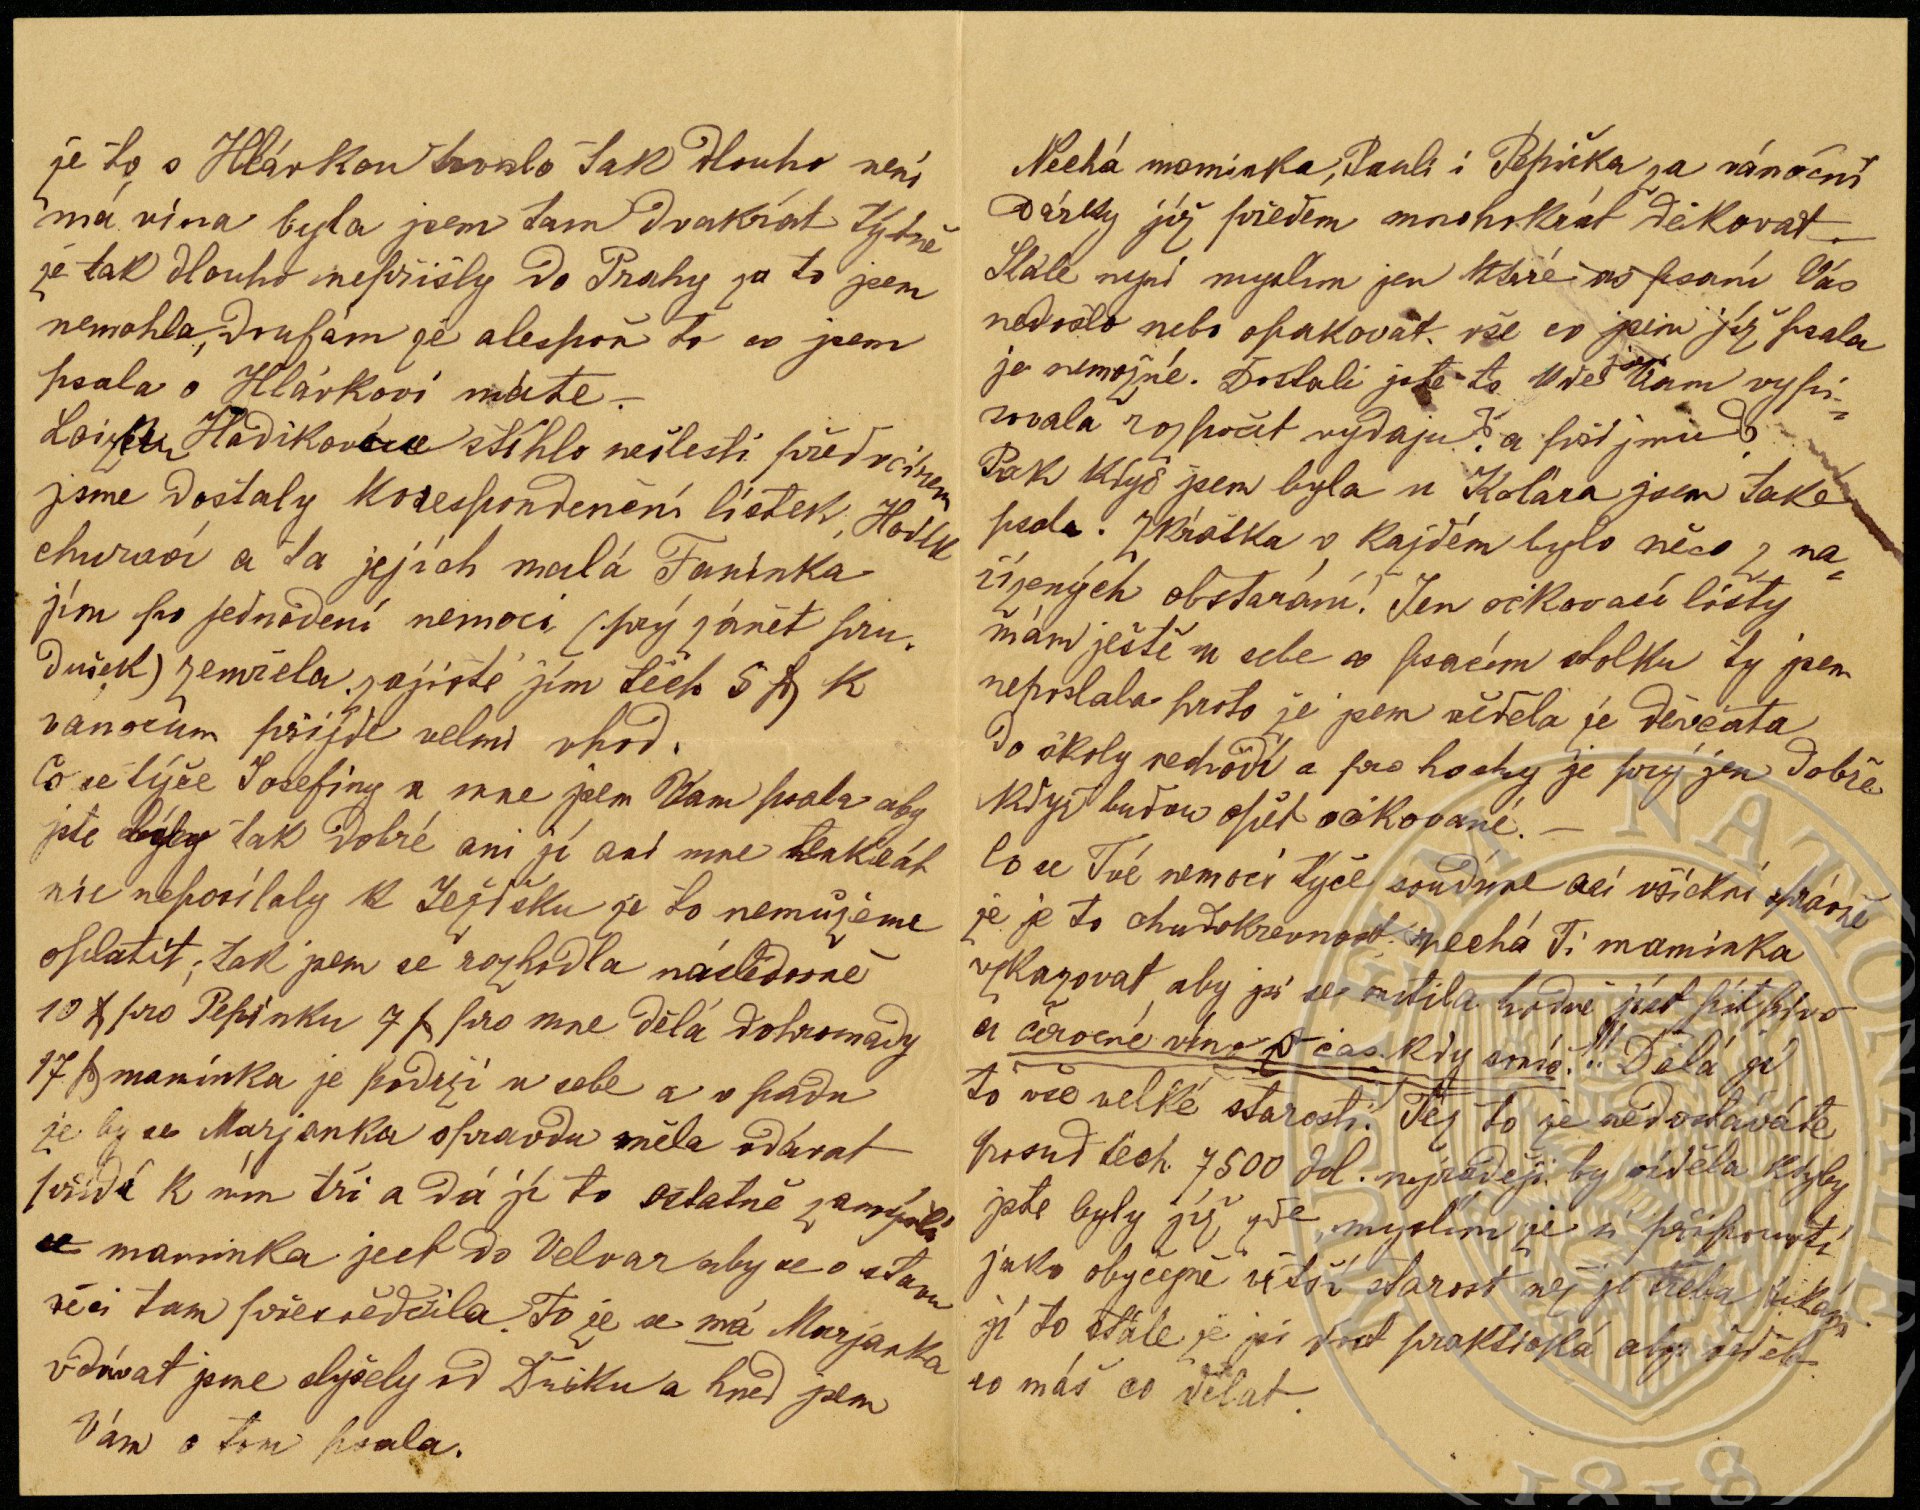 že to s Hlávkou trvalo tak dlouho není
má vina byla jsem tam dvakrát týdně
že tak dlouho nepřišly do Prahy za to jsem
nemohla, doufám že alespoň to co jsem
psala o Hlávkovi máte. —
Hadikovic stihlo neštesti předvčírem
jsme dostaly korespondenční lístek, Hadik
churaví a ta jejich malá Fanínka
jím po jednodení nemoci (prý zánět prů-
dušek) zemřela, zajisté jím těch 5 f K
vanocům přijde velmi vhod.
Co se týče Josefiny a mne jsem Vam psala aby
jste byly tak dobré ani jí ani mne tenkrát
nic neposílaly k Ježíšku že to nemužeme
oplatit; tak jsem se rozhodla následovně
10 f pro Pepinku 7 f pro mne dělá dohromady
17 f maminka je podrží u sebe a v padu
že by se Marjanka opravdu měla vdávat
přidá k ním tři a dá jí to ostatně zamýšlí
se maminka ject do Velvar aby se o stavu
věci tam přesvědčila. To že se má Marjánka
vdávat jsme slyšely od Dušku a hned jsem
Vám o tom psala.
Nechá maminka, Pauli i Pepička za vánoční
Dárky již předem mnohokrát děkovat.
Stále nyní myslím jen které as psaní Vás
nedošlo nebo opakovat vše co jsem již psala
je nemožné. Dostali jste to kde jsem Vam vypi-
sovala rozpočet vydaju? a příjmu?
Pak když jsem byla u Kolára jsem také
psala. Zkrátka v každém bylo něco z na-
řízených obstarání! Jen očkovací lísty
mám ještě u sebe v psacím stolku ty jsem
neposlala proto že jsem věděla že děvčata
do školy nechodí a pro hochy je prý jen dobře
když budou opět očkované. —
Co se Tvé nemoci týče soudíme asi všickni správně
že je to chudokrevnost; nechá Ti maminka
vzkazovat, aby jsi se nutila hodně jíst pít pivo
a červené víno v čas kdy smíš!!! Dělá jí
to vše velké starosti. Též to že nedostáváte
posud těch 7500 dol. nejraději by viděla kdyby
jste byly již zde, myslím že si připouští
jako obyčejně větší starost než je třeba říkám
jí to stále že jsi dost praktická aby věděla
co máš co dělat.